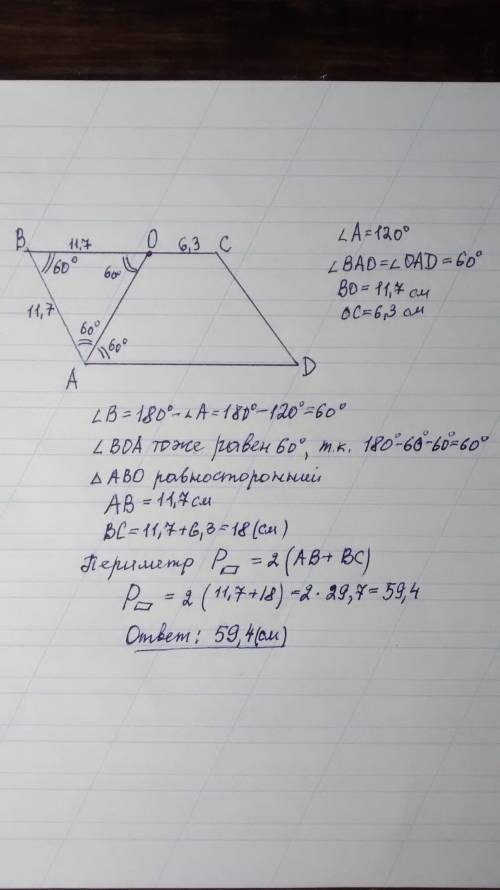 B 11,7 O 6,3 C
60° 60°
11,7
60° 60°
A D
∠A=120°
∠BAO=∠OAD=60°
BO=11,7 см
OC=6,3 см
∠B=180°-∠A=180°-120°=60°
∠BOA тоже равен 60°, т.к. 180°-60°-60°=60°
△ABO равносторонний
AB=11,7см
BC=11,7+6,3=18(см)
Периметр P▱=2(AB+BC)
P▱=2(11,7+18)=2·29,7=59,4
Ответ: 59,4(см)